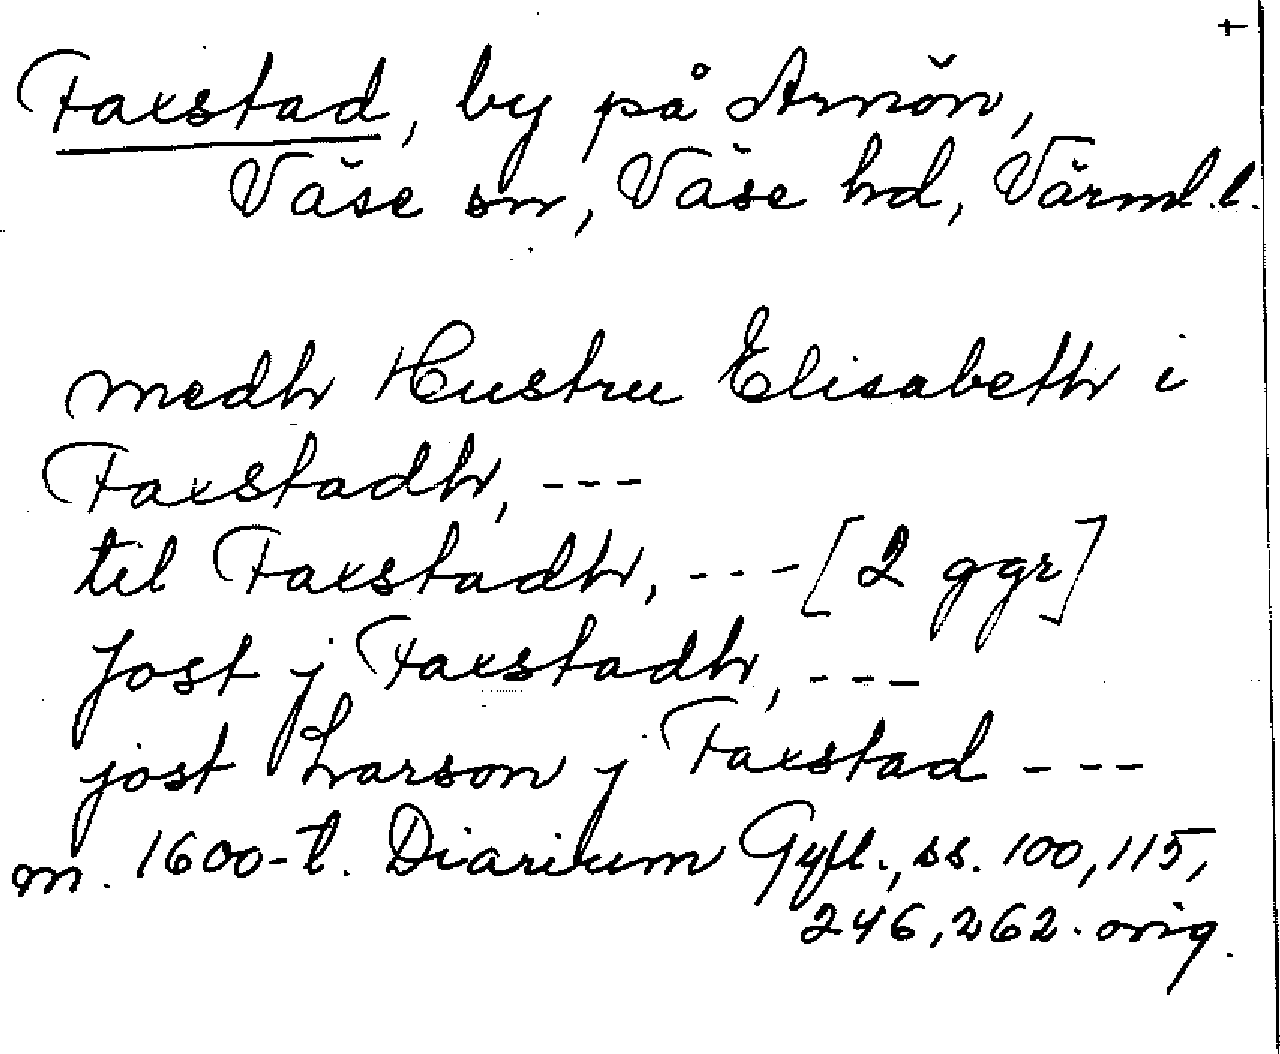 Faxstad, by på Arnön,
Väse sn, Väse hd, Värml. l.
medh Hustru Elisabeth i
Faxstadh, ---
til Faxstadh, --- [2 ggr]
Jost j Faxstadh, ---
jost Larson j Faxstad ---
m. 1600-t. Diarium Gyll., ss. 100, 115,
246, 262. orig.